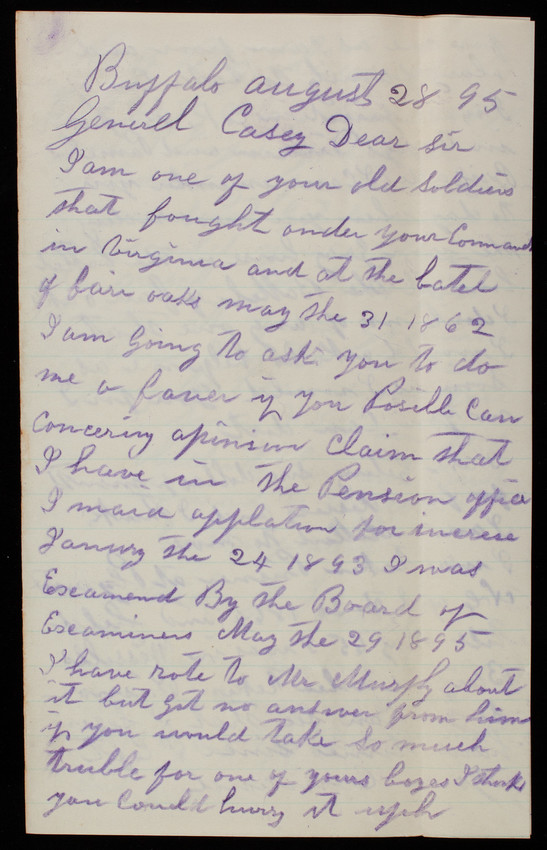 Buffalo august 28 95
Generel Casey Dear Sir
I am one of your old Soldiers
that fought onder your Command
in Virginia and at the batel
of fair oaks may the 31 1862
I am Going to ask you to do
me a faver if you Posille Can
Concering apinsion Claim that
I have in the Pension office
I maid applation for increse
Janury the 24 1893 I was
Examend By the Board of
Examiners May the 29 1895
I have rote to Mr Murphy about
it but git no answer from him
if you would take so much
truble for one of yours boyes I think
you Could hurry it uph